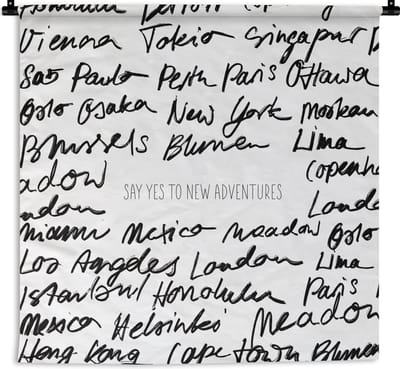 Honolulu
Vienna Tokio Singapur
Sao Paulo Perth Paris Ottawa
Oslo Osaka New York Moskau
Brussels Blumen Lima
adow Copenh
SAY YES TO NEW ADVENTURES
ndon Londo
Miami Mexico Meadow Oslo
Los Angeles London Lima
Istanbul Honolulu Paris
Mexico Helsinki Meadow
Hong Kong Cape Town Blumen